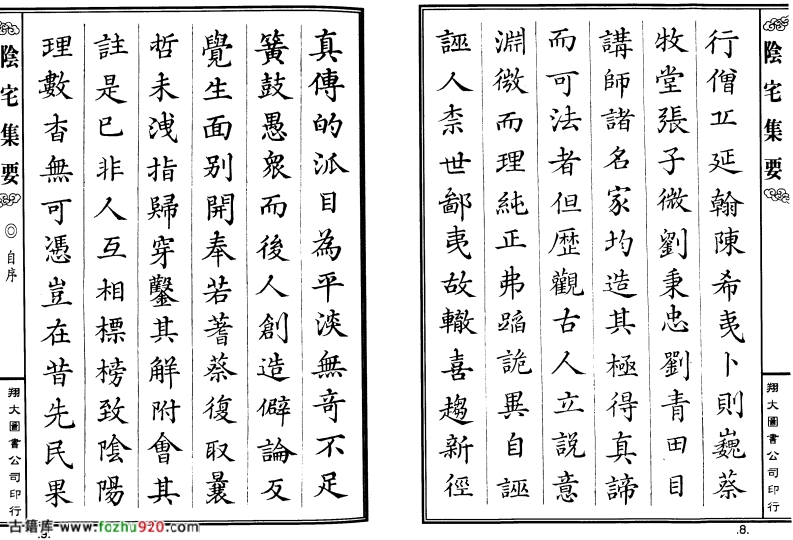 陰宅集要
翔大圖書公司印行
行僧丘延翰陳希夷卜則巍蔡
牧堂張子微劉秉忠劉青田目
講師諸名家均造其極得真諦
而可法者但歷觀古人立說意
淵微而理純正弗蹈詭異自誣
誣人柰世鄙夷故轍喜趨新徑
.8.
真傳的泒目為平淡無竒不足
簧鼓愚衆而後人創造僻論反
覺生面别開奉若蓍蔡復取曩
哲未洩指歸穿鑿其解附會其
註是已非人互相標榜致陰陽
理數杳無可憑豈在昔先民果
陰宅集要
◎自序
翔大圖書公司印行
.9.
古籍库-www.fozhu920.com